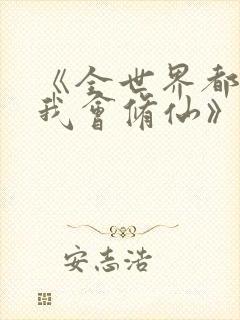 《全世界都
我會脩仙》
安志浩